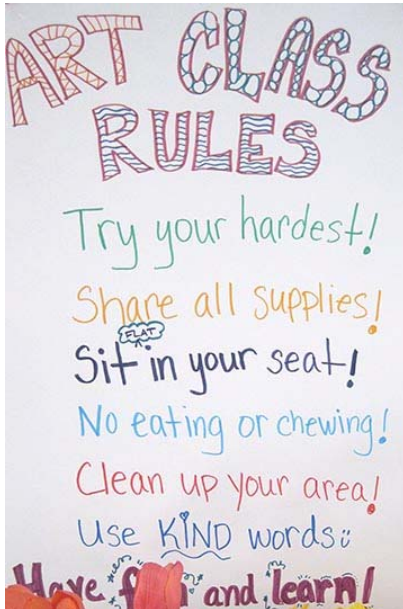 ART CLASS
RULES
Try your hardest!
Share all supplies!
FLAT
Sit in your seat!
No eating or chewing!
Clean up your area!
Use KIND words
Have and learn!